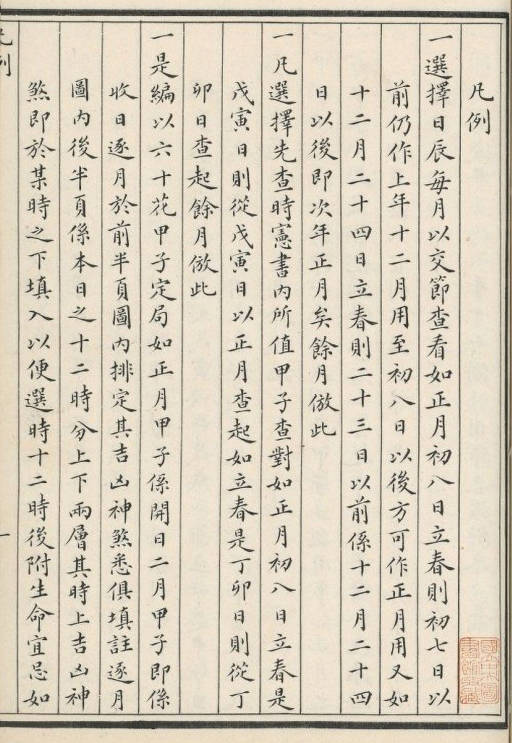 凡例
一選擇日辰每月以交節查看如正月初八日立春則初七日以
前仍作上年十二月用至初八日以後方可作正月用又如
十二月二十四日立春則二十三日以前係十二月二十四
日以後即次年正月矣餘月倣此
一凡選擇先查時憲書內所值甲子查對如正月初八日立春是
戊寅日則從戊寅日以正月查起如立春是丁卯日則從丁
卯日查起餘月倣此
一是編以六十花甲子定局如正月甲子係開日二月甲子即係
收日逐月於前半頁圖內排定其吉凶神煞悉俱填註逐月
圖內後半頁係本日之十二時分上下兩層其時上吉凶神
煞即於某時之下填入以便選時十二時後附生命宜忌如
凡例
一